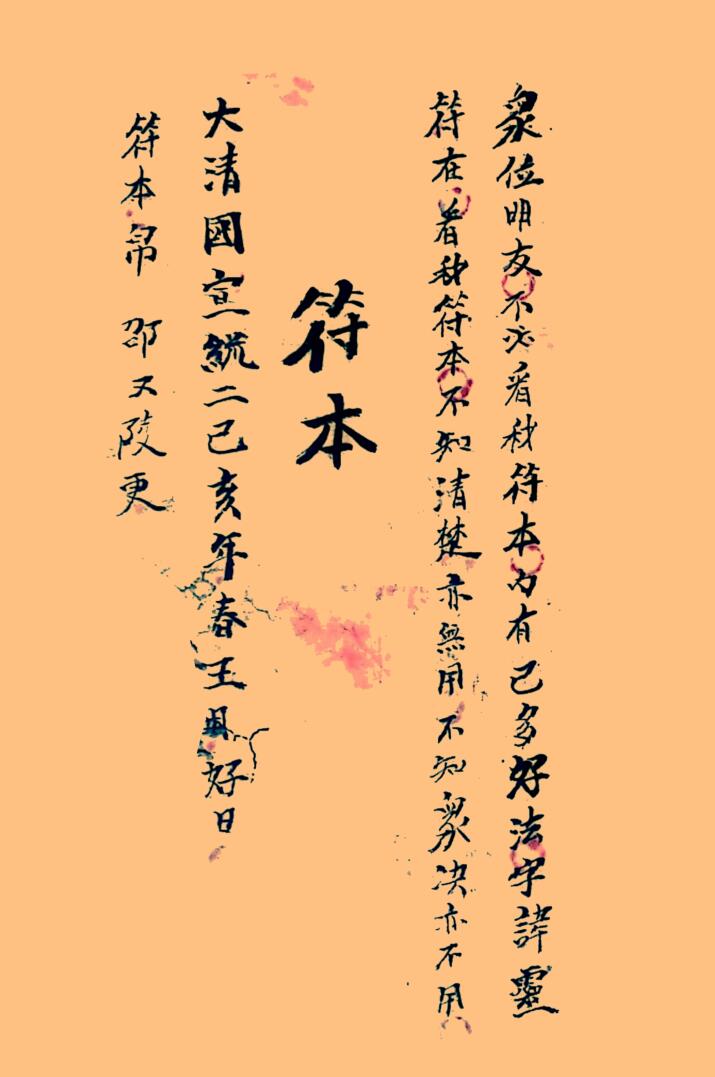 眾位明友不必看我符本內有己多好法字諱靈
符在看我符本不知清楚亦無用不知眾决亦不用
符本
大清國宣統二己亥年春王月好日
符本帋 邵 陵更